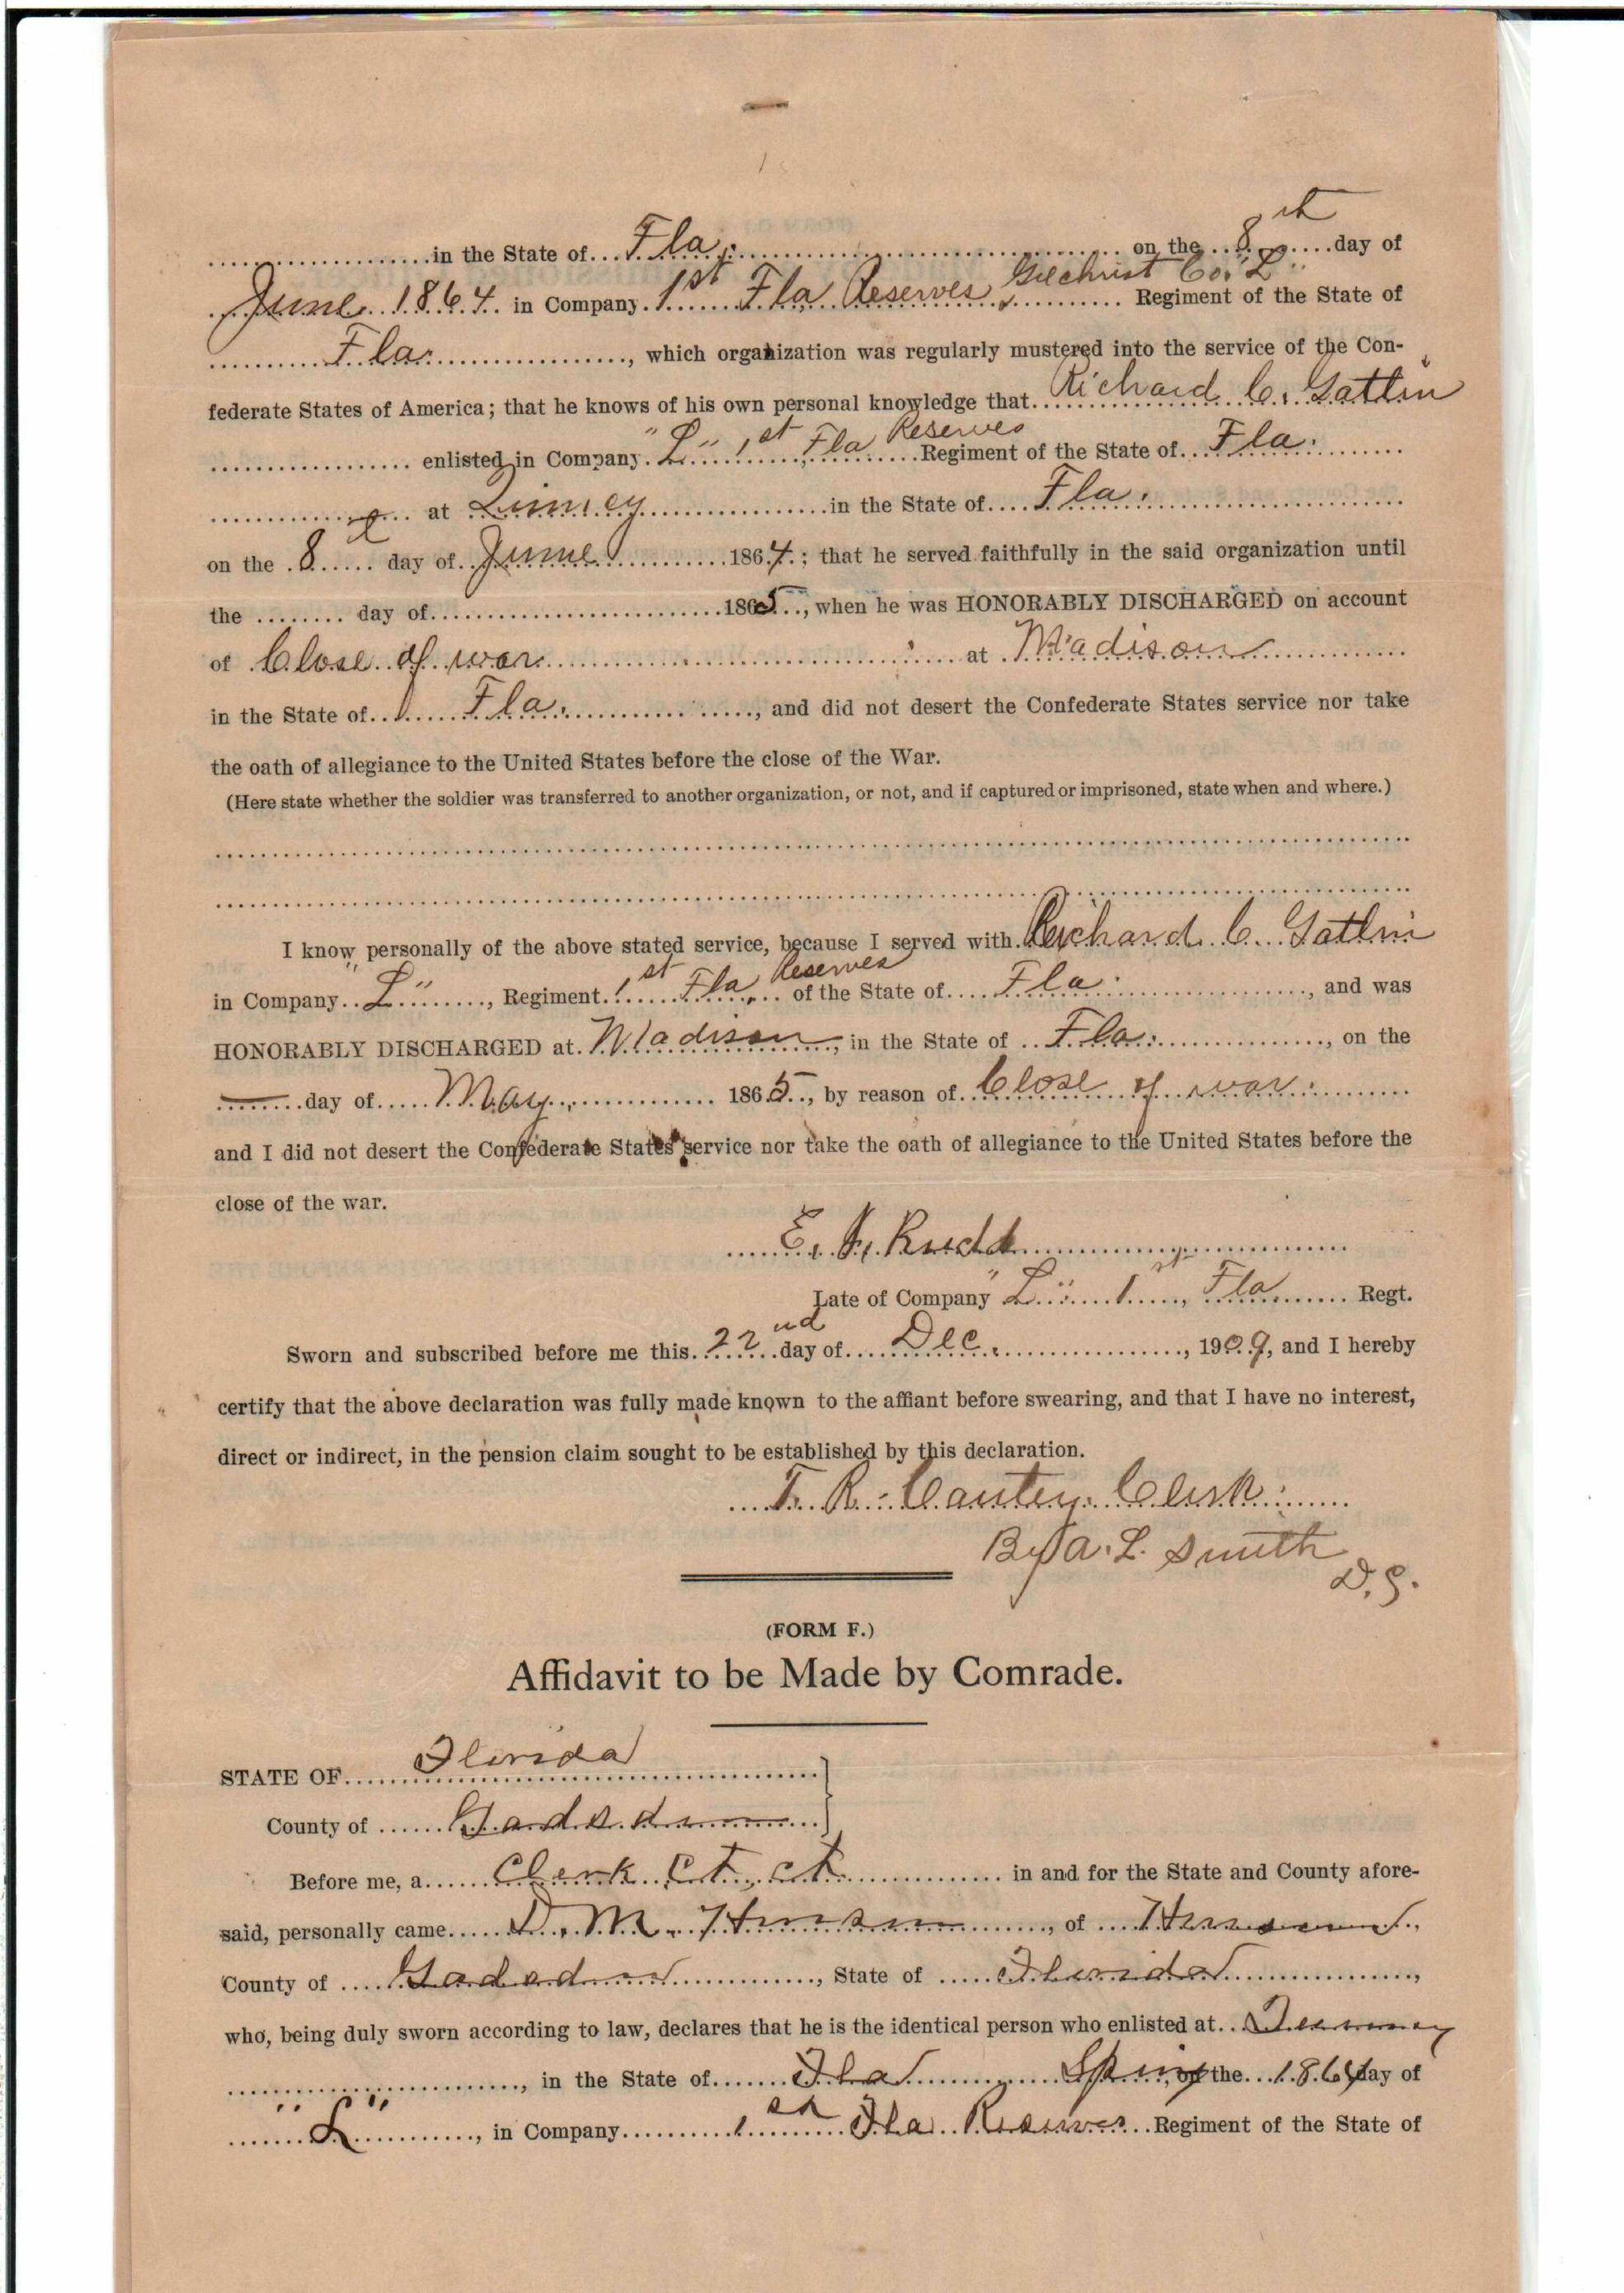 in the State of Fla. on the 8th day of
June 1864 in Company 1st Fla Reserves Gilchrist Co. "L" Regiment of the State of
Fla. , which organization was regularly mustered into the service of the Con-
federate States of America; that he knows of his own personal knowledge that Richard C. Gatlin
enlisted in Company "L" 1st Fla Reserves Regiment of the State of Fla.
at in the State of Fla.
on the 8 day of June 1864; that he served faithfully in the said organization until
the day of 1865, when he was HONORABLY DISCHARGED on account
of Close of war at Madison
in the State of Fla. , and did not desert the Confederate States service nor take
the oath of allegiance to the United States before the close of the War.
(Here state whether the soldier was transferred to another organization, or not, and if captured or imprisoned, state when and where.)
I know personally of the above stated service, because I served with Richard C. Gatlin
in Company "L" , Regiment 1st Fla. Reserves of the State of Fla. , and was
HONORABLY DISCHARGED at Madison, in the State of Fla. , on the
day of May, 1865, by reason of Close of war.
and I did not desert the Confederate States service nor take the oath of allegiance to the United States before the
close of the war.
E. Rudd
Late of Company "L" 1st, Fla. Regt.
Sworn and subscribed before me this 22nd day of Dec. , 1909, and I hereby
certify that the above declaration was fully made known to the affiant before swearing, and that I have no interest,
direct or indirect, in the pension claim sought to be established by this declaration.
T. R. Clerk.
By A. L. Smith
(FORM F.)
Affidavit to be Made by Comrade.
STATE OF Florida
County of Gadsden
Before me, a Clerk Ct. ct. in and for the State and County afore-
said, personally came D. M. Hinson , of Hinson ,
County of Gadsden , State of Florida ,
who, being duly sworn according to law, declares that he is the identical person who enlisted at
, in the State of Fla Spring , on the 1864 day of
"L" , in Company 1st Fla Reserves Regiment of the State of